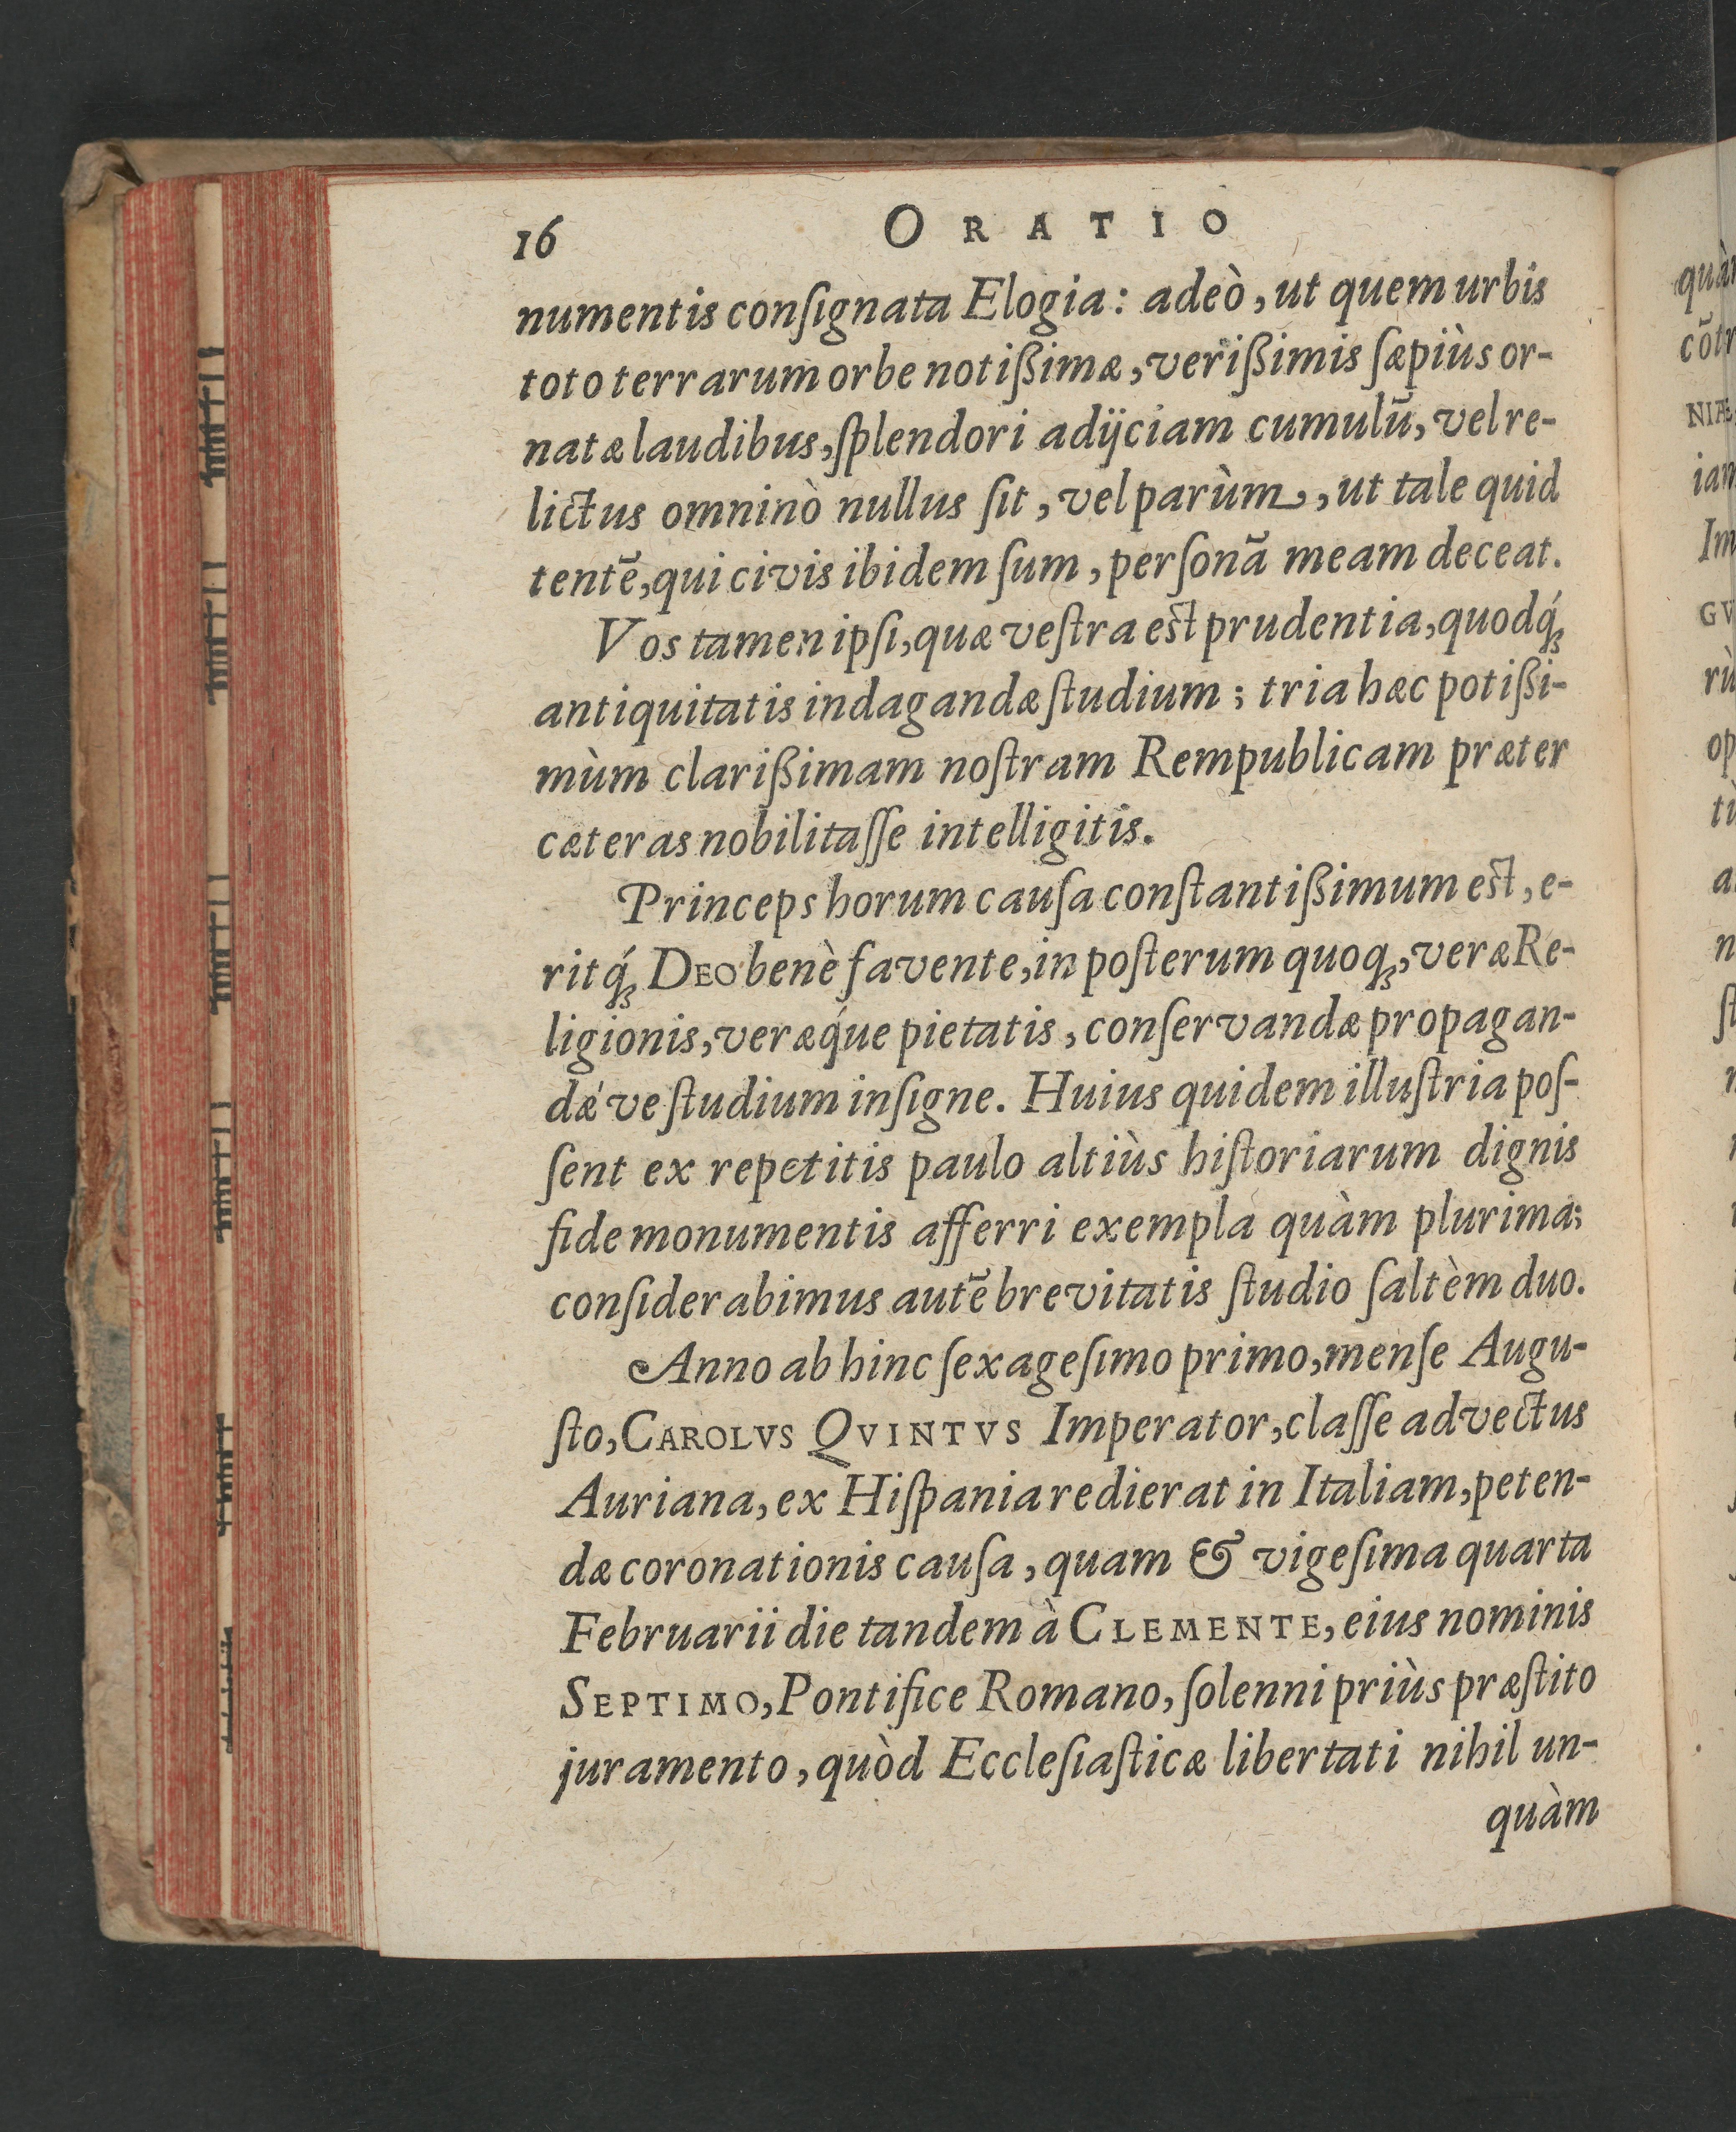 16
ORATIO
numentis conſignata Elogia: adeò, ut quem urbis
toto terrarum orbe notißimæ, verißimis ſæpiùs or-
natæ laudibus, ſplendori adijciam cumulū, vel re-
lictus omninò nullus ſit, vel parùm, ut tale quid
tentē, qui civis ibidem ſum, perſonā meam deceat.
Vos tamen ipſi, quæ veſtra est prudentia, quodq́ꝫ
antiquitatis indagandæ ſtudium; tria hæc potißi-
mùm clarißimam noſtram Rempublicam præter
cæteras nobilitaſſe intelligitis.
Princeps horum cauſa conſtantißimum est, e-
ritq́ꝫ DEO benè favente, in poſterum quoqꝫ, veræ Re-
ligionis, veræq́ue pietatis, conſervandæ propagan-
dǽve ſtudium inſigne. Huius quidem illuſtria poſ-
ſent ex repetitis paulo altiùs hiſtoriarum dignis
fide monumentis afferri exempla quàm plurima;
conſiderabimus autē brevitatis ſtudio ſaltèm duo.
Anno ab hinc ſexageſimo primo, menſe Augu-
ſto, CAROLVS QVINTVS Imperator, claſſe advectus
Auriana, ex Hiſpania redierat in Italiam, peten-
dæ coronationis cauſa, quam & vigeſima quarta
Februarii die tandem à CLEMENTE, eius nominis
SEPTIMO, Pontifice Romano, ſolenni priùs præſtito
juramento, quòd Eccleſiaſticæ libertati nihil un-
quàm